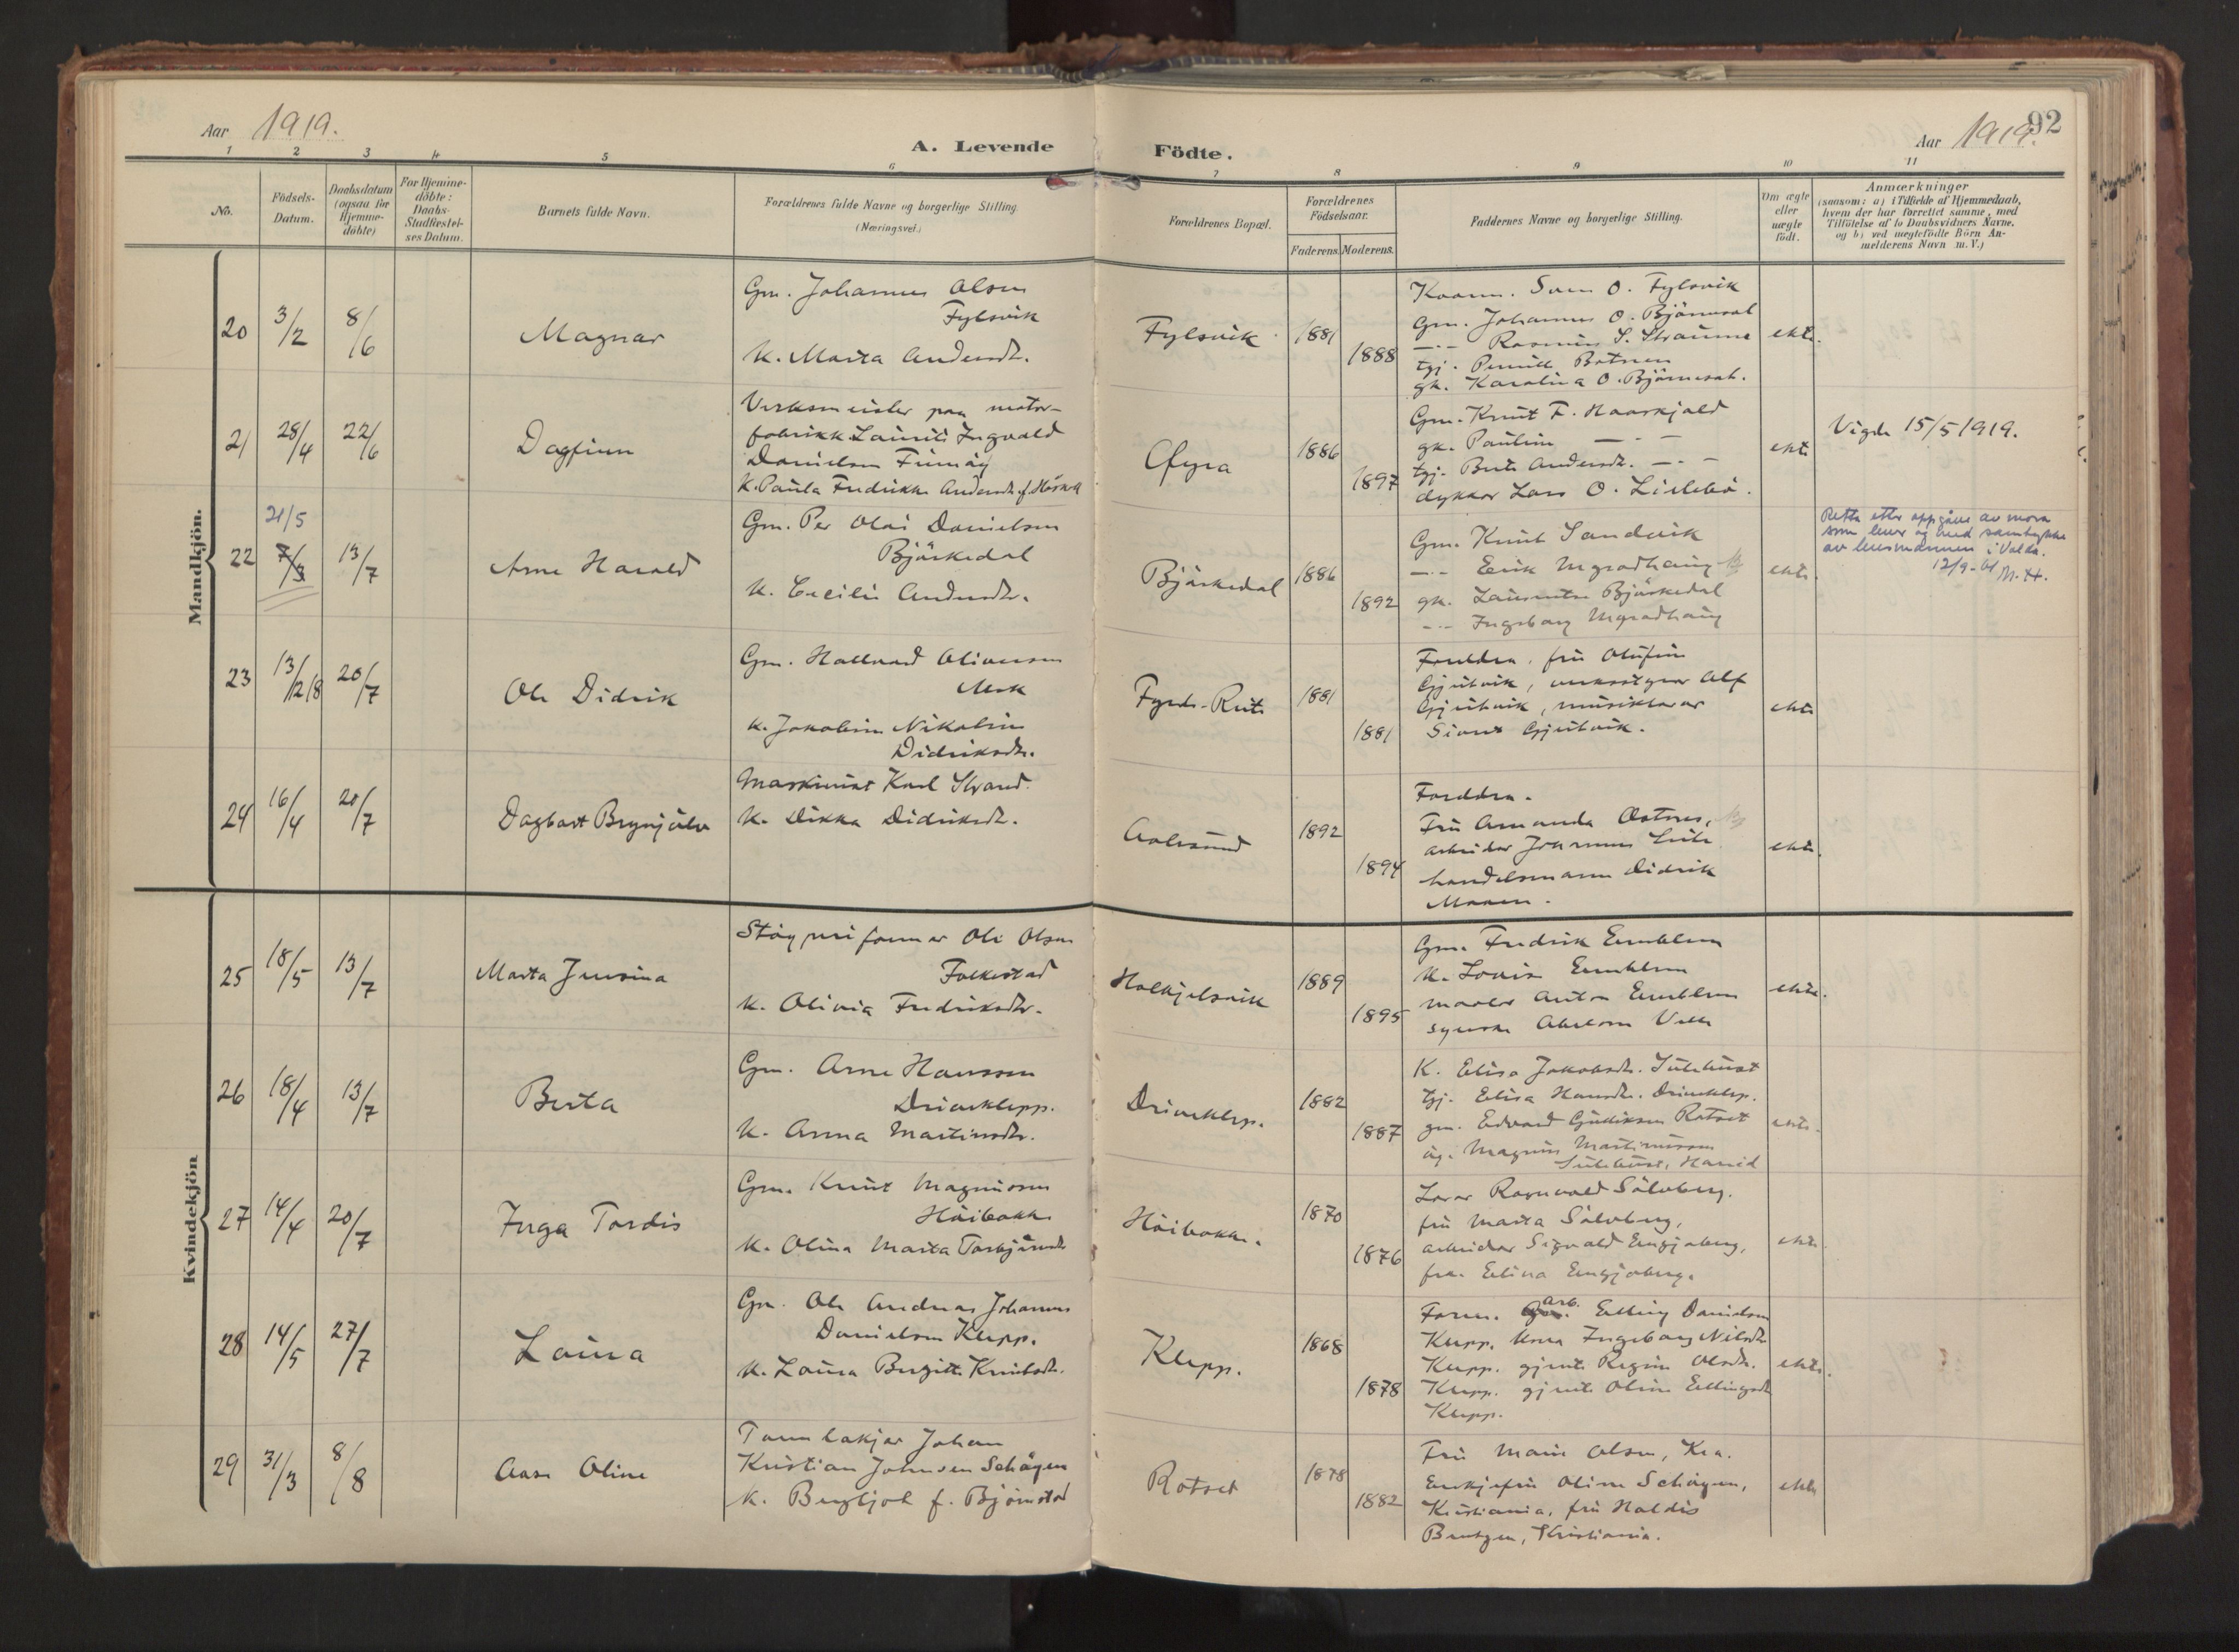 Aar 1919.
A. Levende Födte.
Aar 1919.
92
1 2 3 4 5 6 7 8 9 10 11
No.
Födsels-
Datum.
Daabsdatum
(ogsaa for
Hjemme-
döbte)
For Hjemme-
döbte:
Daabs-
Stadfæstel-
ses Datum.
Barnets fulde Navn.
Forældrenes fulde Navne og borgerlige Stilling.
(Næringsvei.)
Forældrenes Bopæl.
Forældrenes
Födselsaar.
Faderens. Moderens.
Faddernes Navne og borgerlige Stilling.
Om ægte
eller
uægte
födt.
Anmærkninger
(saasom: a) i Tilfælde af Hjemmedaab,
hvem der har forrettet samme, med
Tilföielse af to Daabsvidners Navne,
og b) ved uægtefödte Börn An-
melderens Navn m. V.)
Mandkjön.
20
3/2
8/6
Magnar
Gm. Johannes Olsen
Fylsvik
K. Marta Andersdtr.
Fylsvik
1881
1888
Sven O. Fylsvik
Gm. Johannes O. Björneset
Rasmus S. Straume
tgj. Botnen
gk. Karolina O. Björneset.
ekte.
21
28/4
22/6
Dagfinn
Verksmeister paa motor-
fabrikk Laurits Ingvald
Danielsen Furnöy
K. Paula Fredrikke Andersdtr. f.
Öfyra
1886
1897
Gm. Knut F. Haaskjold
gk. Pauline — " —
tgj. Berte Andersdtr. — " —
dykkar Lars O. Lislebö.
ekte
Vigde 15/5 1919.
22
21/5
7/3
13/7
Arne Harald
Gm. Per Olai Danielsen
Björkedal
K. Cecilie Andersdtr.
Björkedal
1886
1892
Gm. Knut Sandvik
— " — Eirik
gk. Laurentse Björkedal
— " — Ingeborg
ekte.
Retta etter oppgåve av mora
som lever og med samtykke
av lensmannen i Volda.
12/9-61 M. H.
23
13/12 18
20/7
Ole Didrik
Gm. Hallvard Oliversen
Mork
K. Jakobine Nikoline
Didriksdtr.
Fyrde-Reite
1881
1881
Foreldra, fru Olufine
Gjutvik, Alf
Gjutvik, musiklærar
Gjutvik.
ekte
24
16/4
20/7
Dagbart Brynjulv
Maskinist Karl Strand.
K. Dikka Didriksdtr.
Aalesund
1892
1894
Foreldra.
Fru Amanda
arbeidar Johannes
handelsmann Didrik
ekte.
Kvindekjön
25
18/5
13/7
Marta Jensina
Stöyperiformar Ole Olsen
Folkestad
K. Olivia Fredriksdtr.
Halkjelsvik
1889
1895
Gm. Fredrik Emblem
K. Lovise Emblem
maalar Anton Emblem
ekte.
26
18/4
13/7
Berta
Gm. Arne Hansson
Driveklepp.
K. Anna Martinsdtr.
Driveklep.
1882
1887
K. Elisa Jakobsdtr.
tgj. Elisa Hansdtr. Driveklep.
gm. Edvard Rotset
ug. Magnus Martinussen
Hareid
ekte.
27
14/4
20/7
Inga Tordis
Gm. Knut Magnussen
Höibakke
K. Olina Marta
Höibakke.
1870
1876
Lærar Ragnvald Sölvberg.
fru Marta Sölvberg,
arbeidar Sigvald Engjaberg,
fru. Elina Engjaberg.
ekte.
28
14/5
27/7
Laura
Gm. Ole Andreas Johannes
Danielsen Klepp.
K. Laura Birgitte Knutsdtr.
Klepp.
1868
1878
Form. arb. Elling Danielsen
Klepp. kona Ingeborg Nilsdtr.
Klepp. gjente Regine Olsdtr.
Klepp. gjente Oline Ellingsdtr.
Klepp.
ekte.
29
31/3
8/8
Aase Oline
Tannlækjar Johan
Kristian Johnsen Schöyen
K. Bergljot f. Björnstad
Rotset
1878
1882
Fru Marie Olsen, Kra.
Enkjefru Oline Schöyen,
Kristiania, fru Haldis
Berntzen, Kristiania.
ekte